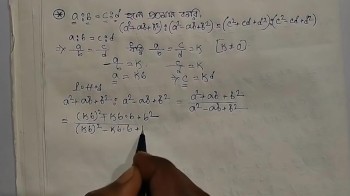 * a:b = c:d হলে প্রমাণ করি,
(a²+ab+b²):(a²-ab+b²) = (c²+cd+d²):(c²-cd+d²)
a:b = c:d
⇒ a/b = c/d ধরি a/b = c/d = K [K ≠ 0]
a/b = K c/d = K
a = Kb ⇒ c = Kd
a²+ab+b² : a²-ab+b² = (a²+ab+b²)/(a²-ab+b²)
= ((Kb)²+Kb·b+b²)/((Kb)²-Kb·b+